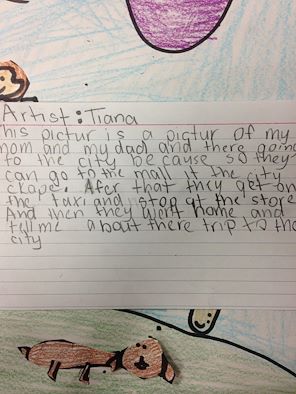 Artist: Tiana
his pictur is a pictur of my
mom and my dad and there going
to the city because so they
can go to the mall it the city
ckape. Afer that they get on
the taxi and stop at the store
And then they went home and
tell me about there trip to the
city